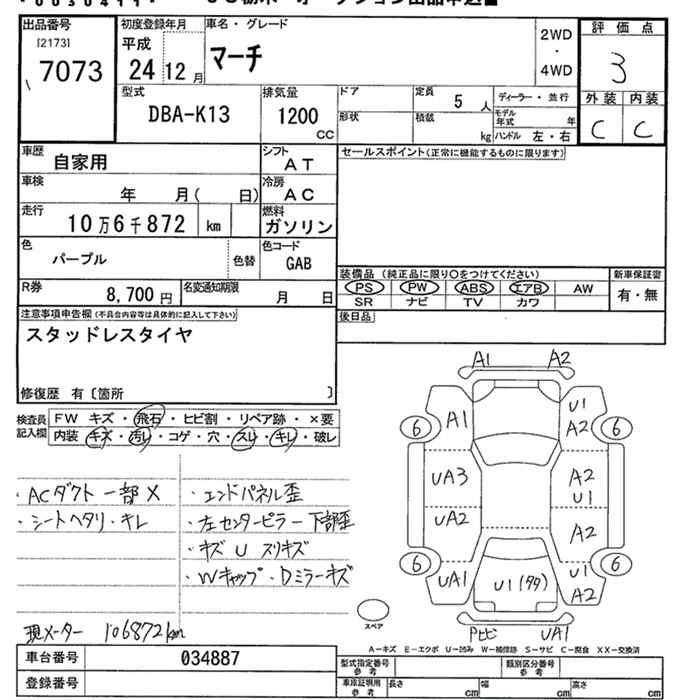 出品番号
[2173]
7073
初度登録年月
平成
24 12 月
車名・グレード
マーチ
2WD
・
4WD
評価点
3
外装 内装
C C
型式
DBA-K13
排気量
1200
CC
ドア
形状
定員
5 人
積載
kg
ディーラー・並行
モデル年式 年
ハンドル 左・右
車歴
自家用
シフト
AT
セールスポイント(正常に機能するものに限ります)
車検
年 月( 日)
冷房
AC
走行
10万6千872 km
燃料
ガソリン
色
パープル
色替
色コード
GAB
装備品(純正品に限り〇をつけてください)
新車保証書
PS PW ABS エアB AW
有・無
SR ナビ TV カワ
R券
8,700 円
名変通知期限
月 日
後日品
注意事項申告欄(不具合内容等は具体的に記入して下さい)
スタッドレスタイヤ
修復歴 有〔箇所 〕
検査員記入欄
FW キズ・飛石・ヒビ割・リペア跡・×要
内装 キズ・汚れ・コゲ・穴・スレ・キレ・破レ
・ACダクト一部X
・シートヘタリ・キレ
・エンドパネル歪
・左センターピラー下部歪
・キズ U スリキズ
・Wキャップ・Dミラーキズ
現メーター 106872km
A1 A2
A1
U1
A2
6 6
UA3
A2
U1
UA2
A2
6 6
UA1
U1(タタ)
U1
A2
Pヒビ UA1
スペア
A-キズ E-エクボ U-凹み W-補修跡 S-サビ C-腐食 XX-交換済
車台番号
034887
登録番号
型式指定番号
参考
類別区分番号
参考
車庫証明用
参考
長さ cm
幅 cm
高さ cm